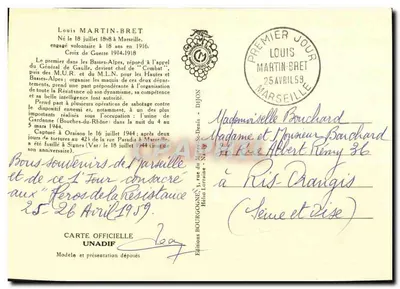 Louis MARTIN-BRET
Né le 18 juillet 1898 à Marseille,
engagé volontaire à 18 ans en 1916.
Croix de Guerre 1914-1918
Le premier dans les Basses-Alpes, répond à l'appel
du Général de Gaulle, devient chef de "Combat",
puis des M.U.R. et du M.L.N. pour les Hautes et
Basses-Alpes; organise les maquis de ces deux dépar-
tements, prend une part prépondérante à l'organisation
de toute la Résistance dont son dynamisme, sa compétence
et sa belle intelligence font autorité.
Prend part à plusieurs opérations de sabotage contre
le dispositif ennemi et, notamment, à un des plus
importants réalisés sous l'occupation : l'usine de
Gardanne (Bouches-du-Rhône) dans la nuit du 4 au
5 mars 1944.
Capturé à Oraison le 16 juillet 1944 ; après deux
jours de tortures au 425 de la rue Paradis à Marseille,
est fusillé à Signes (Var) le 18 juillet 1944
anniversaire.
Bons souvenirs de Marseille
et de ce 1er Jour consacré
aux "Héros de la Résistance"
25-26 Avril 1959.
CARTE OFFICIELLE
UNADIF
Modèle et présentation déposés
Editions BOURGOGNE
DIJON
PREMIER JOUR
LOUIS
MARTIN-BRET
25 AVRIL 59
MARSEILLE
Mademoiselle Bouchard
Madame et Monsieur Bouchard
Albert Rémy 36
à Ris-Orangis
(Seine et Oise)